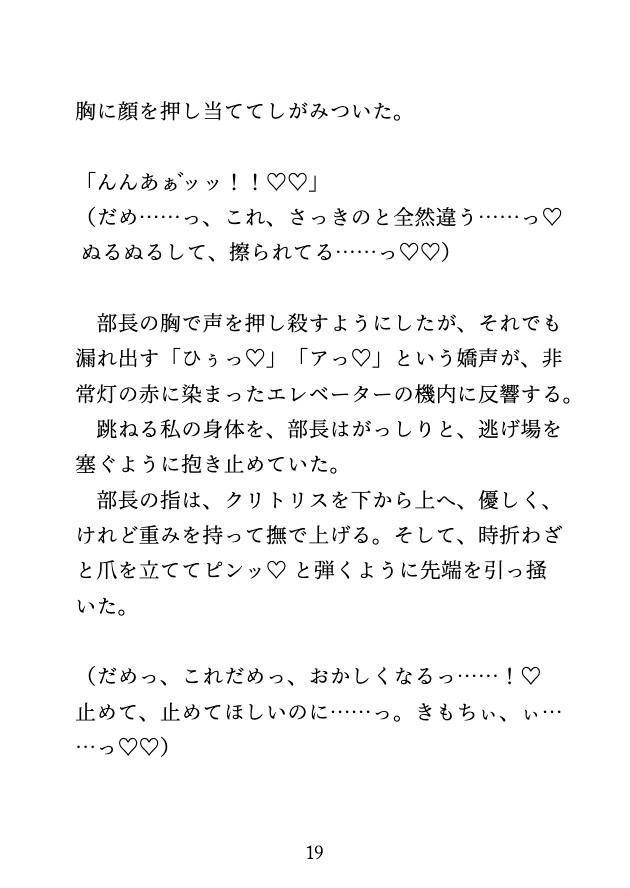 胸に顔を押し当ててしがみついた。
「んんあぁ゛ッッ！！♡♡」
（だめ……っ、これ、さっきのと全然違う……っ♡
ぬるぬるして、擦られてる……っ♡♡）
部長の胸で声を押し殺すようにしたが、それでも
漏れ出す「ひぅっ♡」「アっ♡」という嬌声が、非
常灯の赤に染まったエレベーターの機内に反響する。
跳ねる私の身体を、部長はがっしりと、逃げ場を
塞ぐように抱き止めていた。
部長の指は、クリトリスを下から上へ、優しく、
けれど重みを持って撫で上げる。そして、時折わざ
と爪を立ててピンッ♡ と弾くように先端を引っ掻
いた。
（だめっ、これだめっ、おかしくなるっ……！♡
止めて、止めてほしいのに……っ。きもちぃ、ぃ…
…っ♡♡）
19